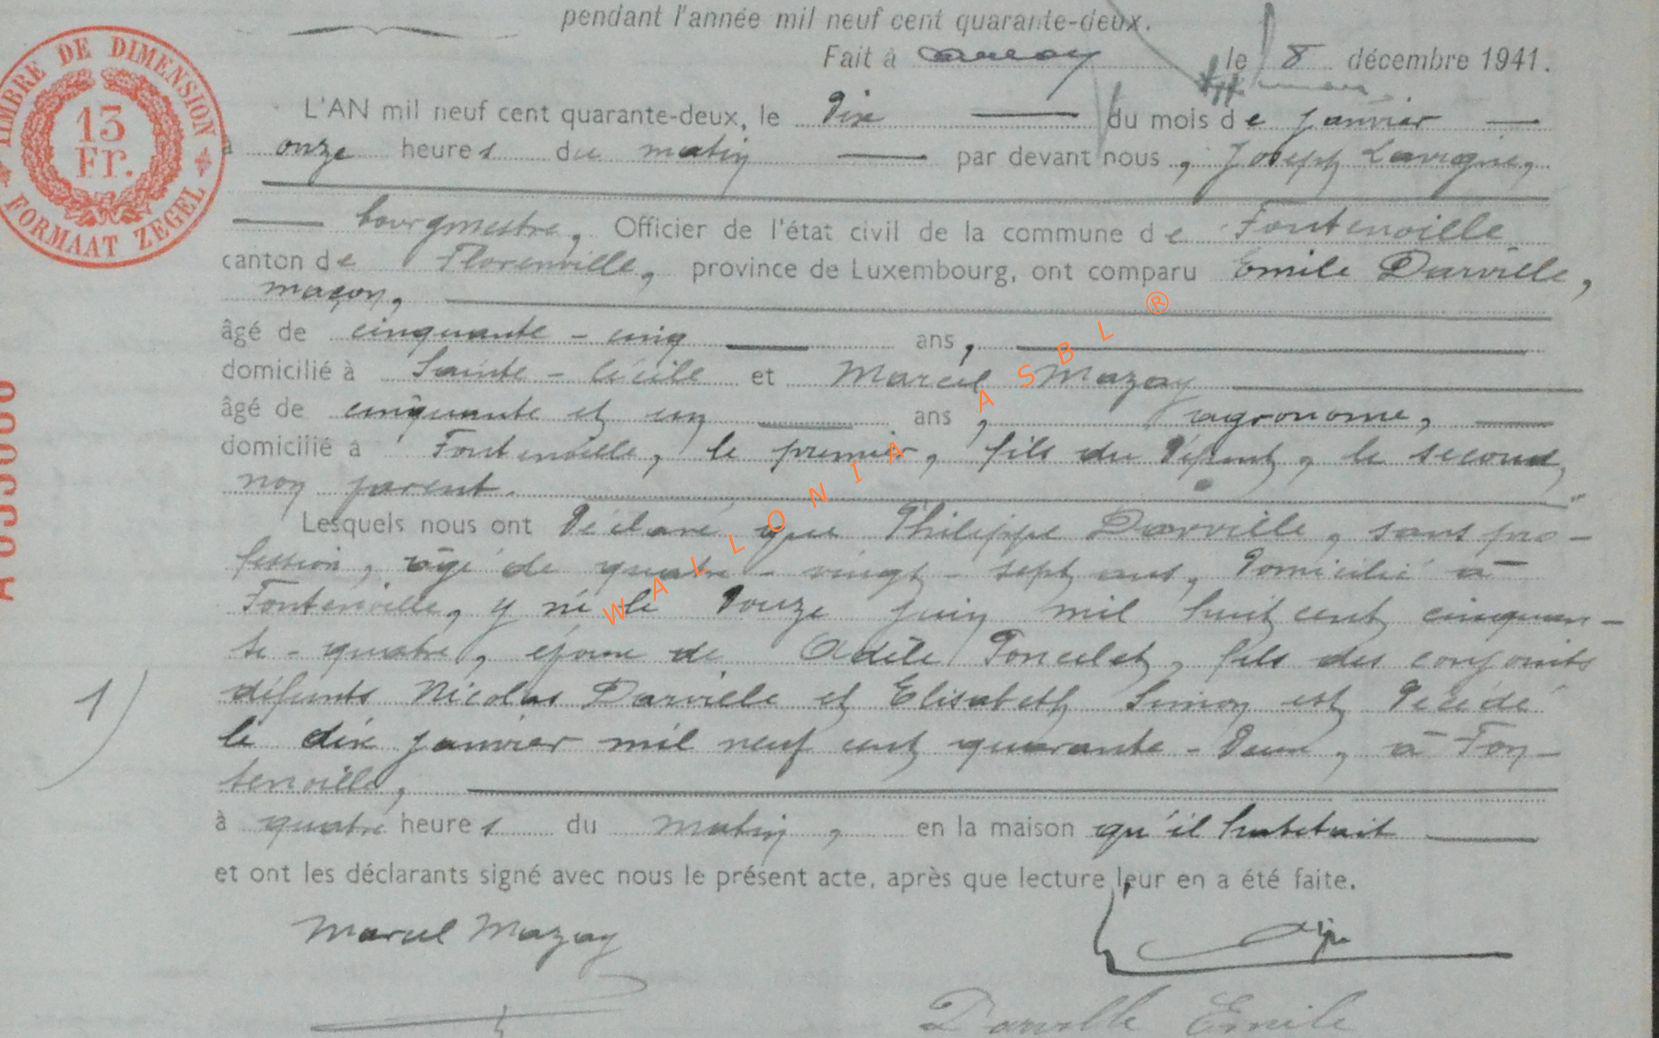 pendant l'année mil neuf cent quarante-deux.
Fait à le 8 décembre 1941.
TIMBRE DE DIMENSION
13
Fr.
FORMAAT ZEGEL
L'AN mil neuf cent quarante-deux, le dix du mois de janvier
à onze heures du matin par devant nous, Joseph Lavigne,
bourgmestre, Officier de l'état civil de la commune de Fontenoille
canton de Florenville, province de Luxembourg, ont comparu Emile Darville,
maçon,
âgé de cinquante-cinq ans,
domicilié à Sainte-Cécile et Marcel Mazay
âgé de cinquante et un ans, agronome,
domicilié à Fontenoille, le premier, fils du défunt, le second,
non parent.
Lesquels nous ont déclaré que Philippe Darville, sans pro-
fession, âgé de quatre-vingt-sept ans, domicilié à
Fontenoille, y né le douze juin mil huit cent cinquan-
te-quatre, époux de Adèle Poncelet, fils des conjoints
défunts Nicolas Darville et Elisabeth Simon est décédé
le dix janvier mil neuf cent quarante-deux, à Fon-
tenoille,
1)
à quatre heures du matin, en la maison qu'il habitait
et ont les déclarants signé avec nous le présent acte, après que lecture leur en a été faite.
Marcel Mazay
Darville Emile
WALLONIA ASBL ®